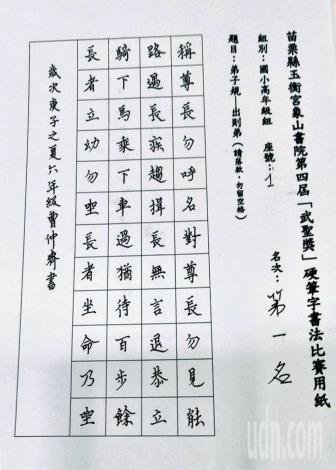 苗栗縣玉衡宮象山書院第四屆「武聖獎」硬筆字書法比賽用紙
組別：國小高年級組 座號：1 名次：第一名
題目：弟子規—出則弟（請落款，勿留空格）
稱尊長勿呼名對尊長勿見能
路遇長疾趨揖長無言退恭立
騎下馬乘下車過猶待百步餘
長者立幼勿坐長者坐命乃坐
歲次庚子之夏六年級曹仲齊書
udn.com